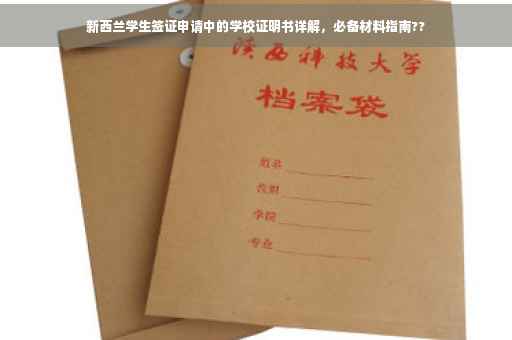 新西兰学生签证申请中的学校证明书详解，必备材料指南??
陕西科技大学
档案袋
姓名
学院
专业